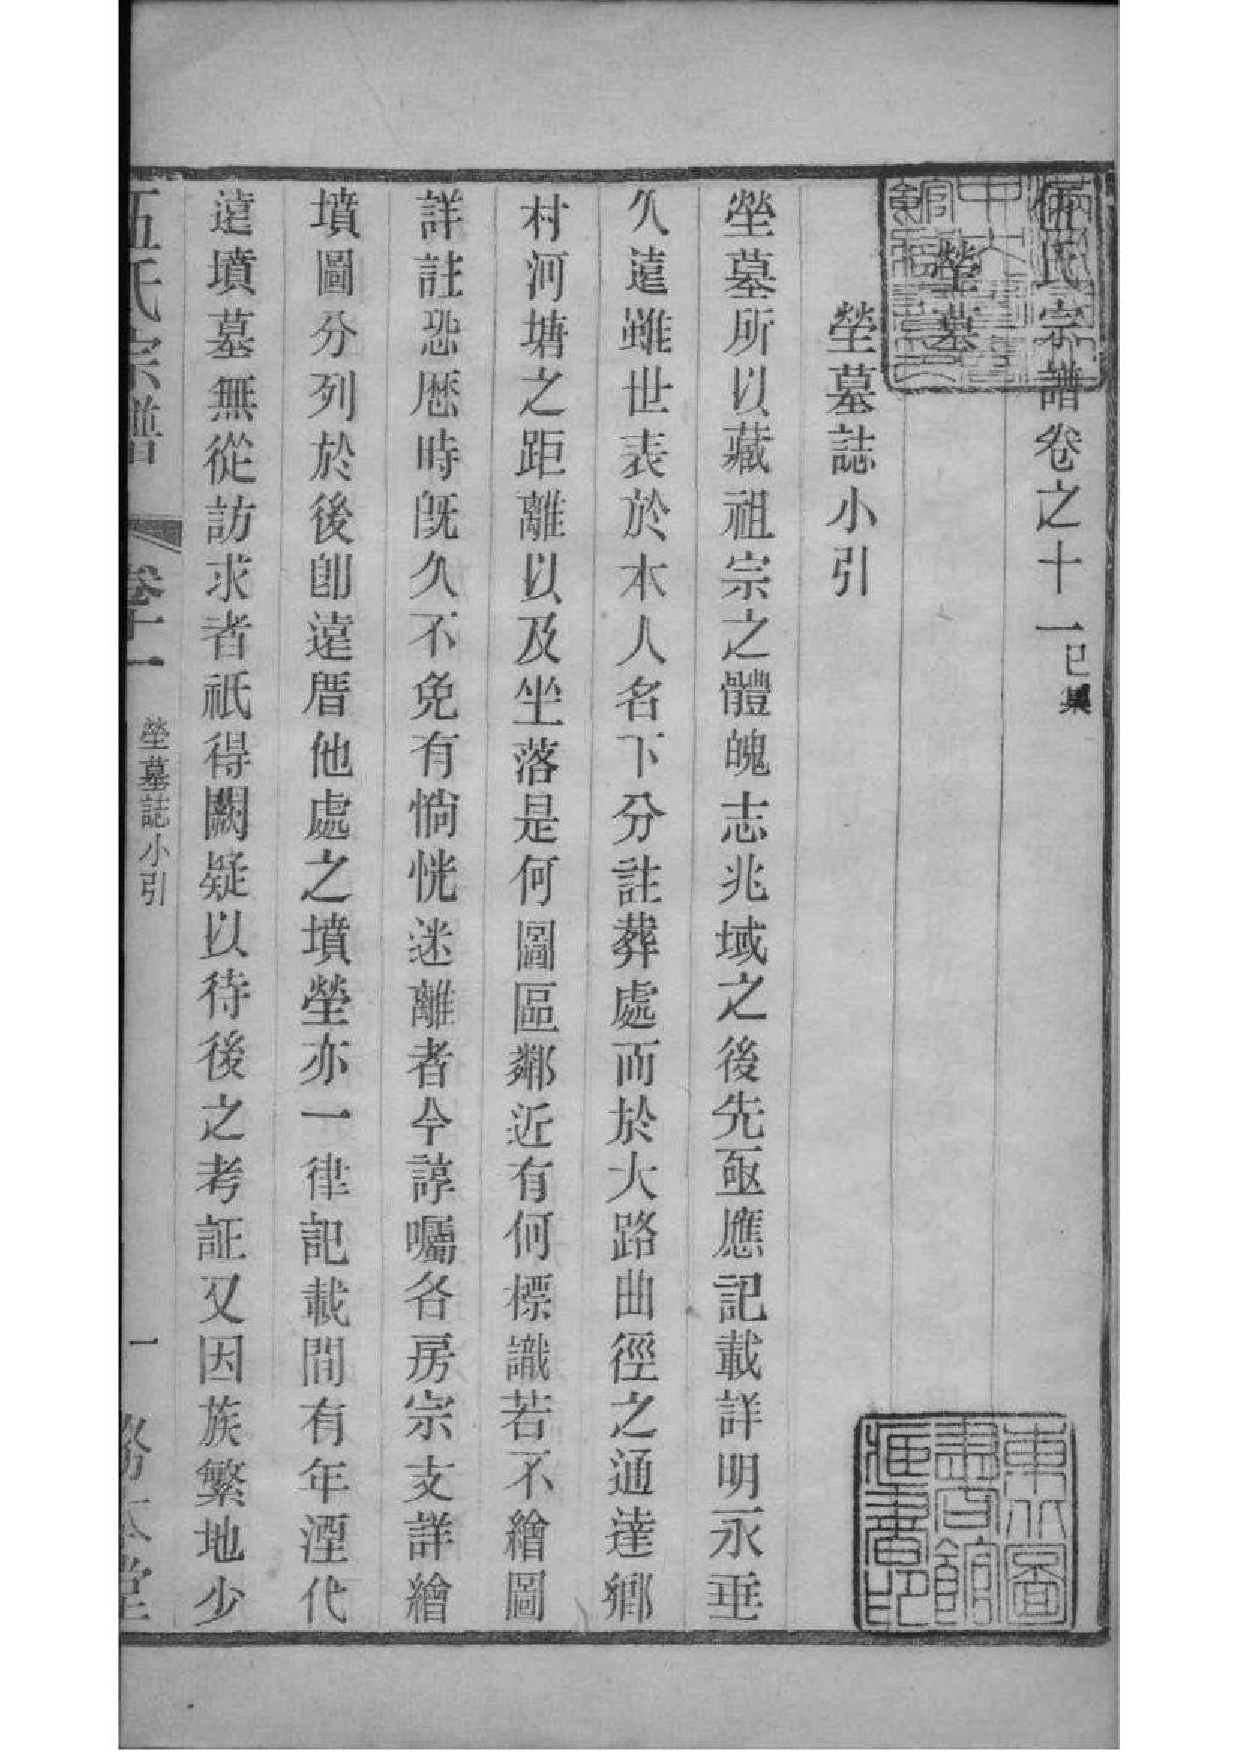 伍氏宗譜卷之十一 已集
塋墓
塋墓誌小引
塋墓所以藏祖宗之體魄志兆域之後先亟應記載詳明永垂
久遠雖世表於本人名下分註葬處而於大路曲徑之通達鄉
村河塘之距離以及坐落是何圖區鄰近有何標識若不繪圖
詳註恐歷時旣久不免有惝恍迷離者今諄囑各房宗支詳繪
墳圖分列於後卽遠厝他處之墳塋亦一律記載間有年湮代
遠墳墓無從訪求者祇得闕疑以待後之考証又因族繁地少
伍氏宗譜 卷十一 塋墓誌小引 一 務本堂
東北圖書館藏書印